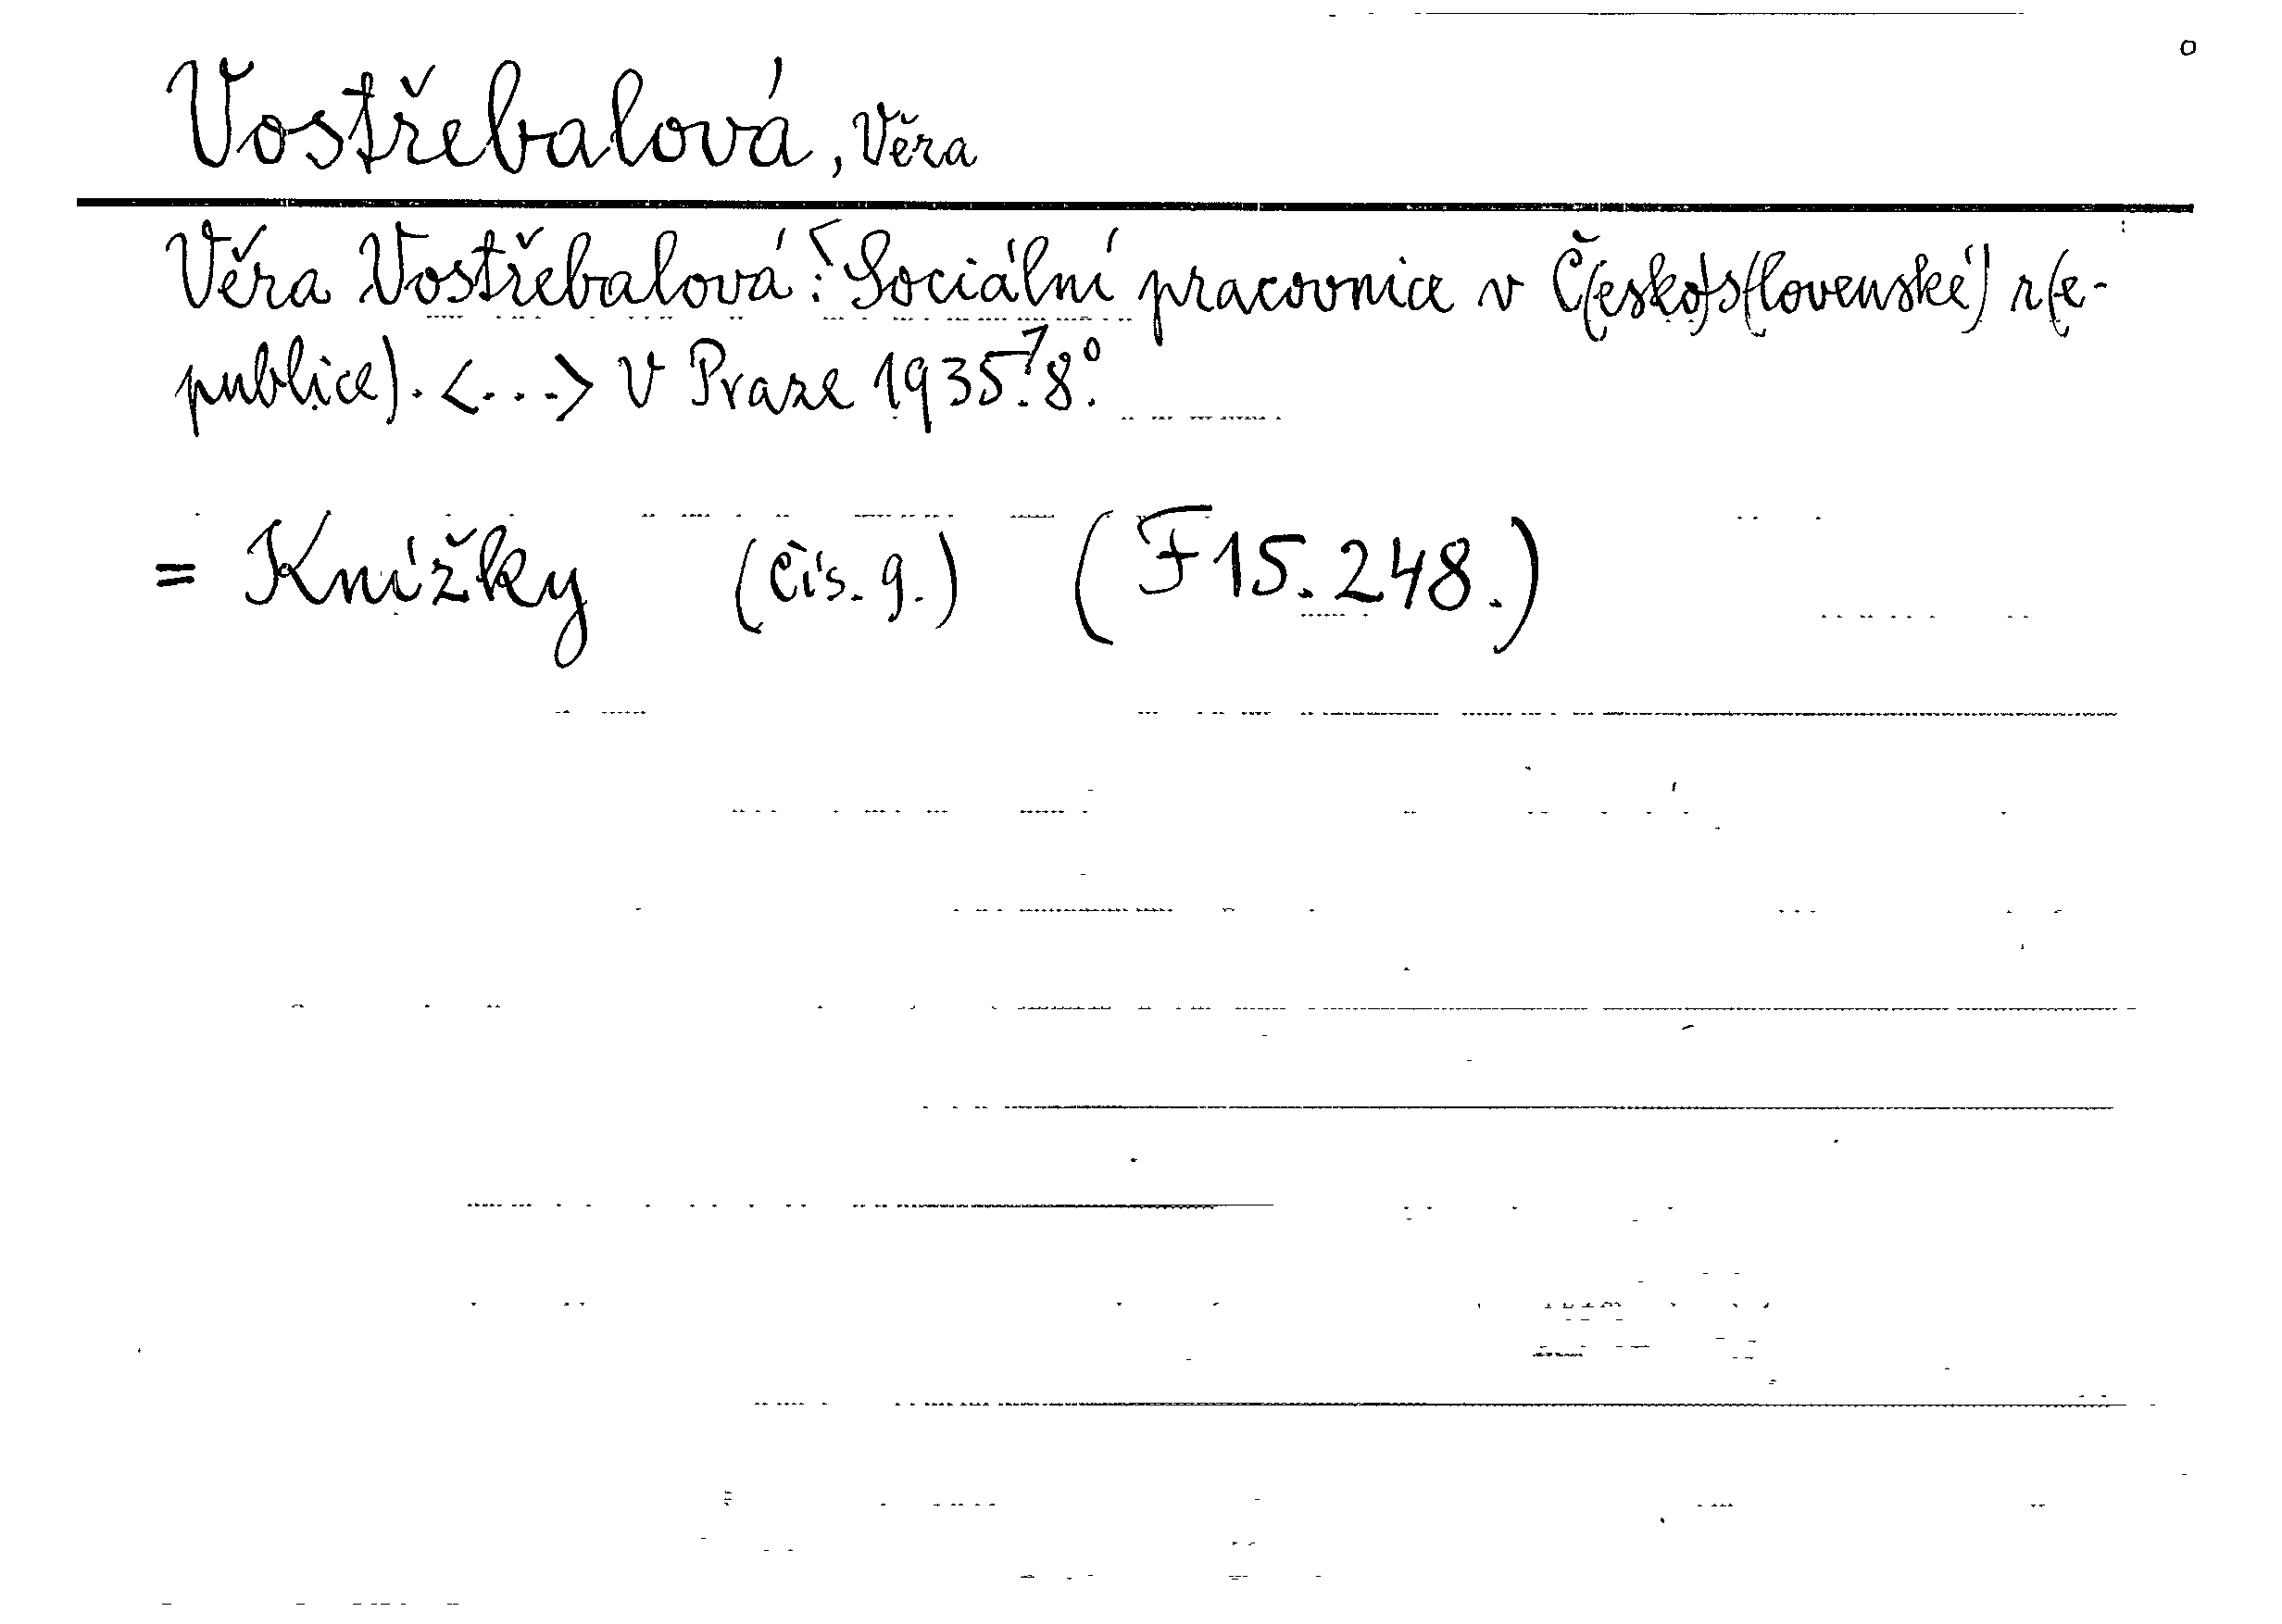 Vostřebalová, Věra
Věra Vostřebalová: Sociální pracovnice v Č(esko)s(lovenské) r(e-
publice). <...> V Praze 1935. 8°.
= Knížky (čís. 9.) (F15.248.)